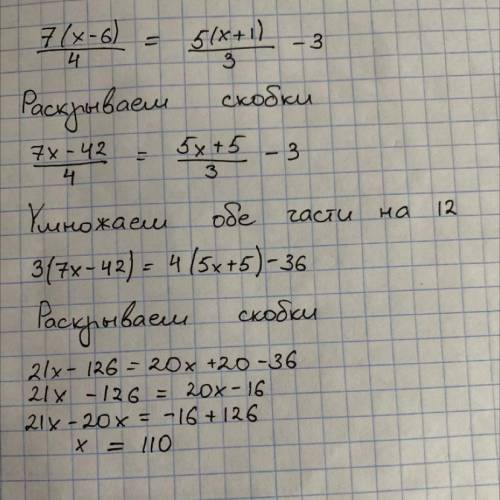 7(x-6)/4 = 5(x+1)/3 - 3
Раскрываем скобки
7x - 42/4 = 5x + 5/3 - 3
Умножаем обе части на 12
3(7x-42) = 4(5x+5) - 36
Раскрываем скобки
21x - 126 = 20x + 20 - 36
21x - 126 = 20x - 16
21x - 20x = -16 + 126
x = 110